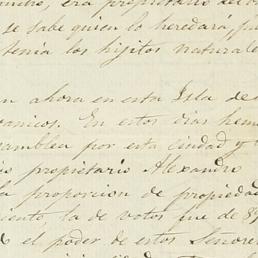 era propietario de
se sabe quien lo heredará
tenía los hijitos natural
n ahora en esta Isla de
canicos. En estos dias hem
amblea por esta Ciudad y
is propietario Alexandro
la proporcion de propiedad
ciento, la de votos que de
el poder de estos Señore